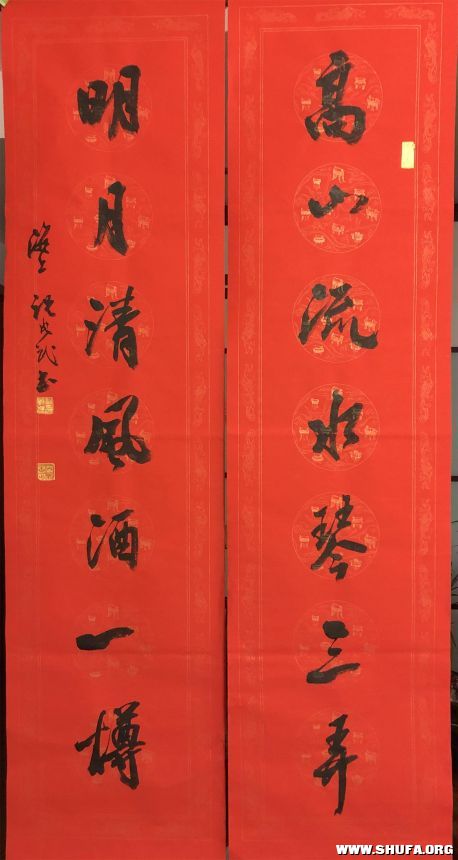 高山流水琴三弄
明月清风酒一樽
WWW.SHUFA.ORG